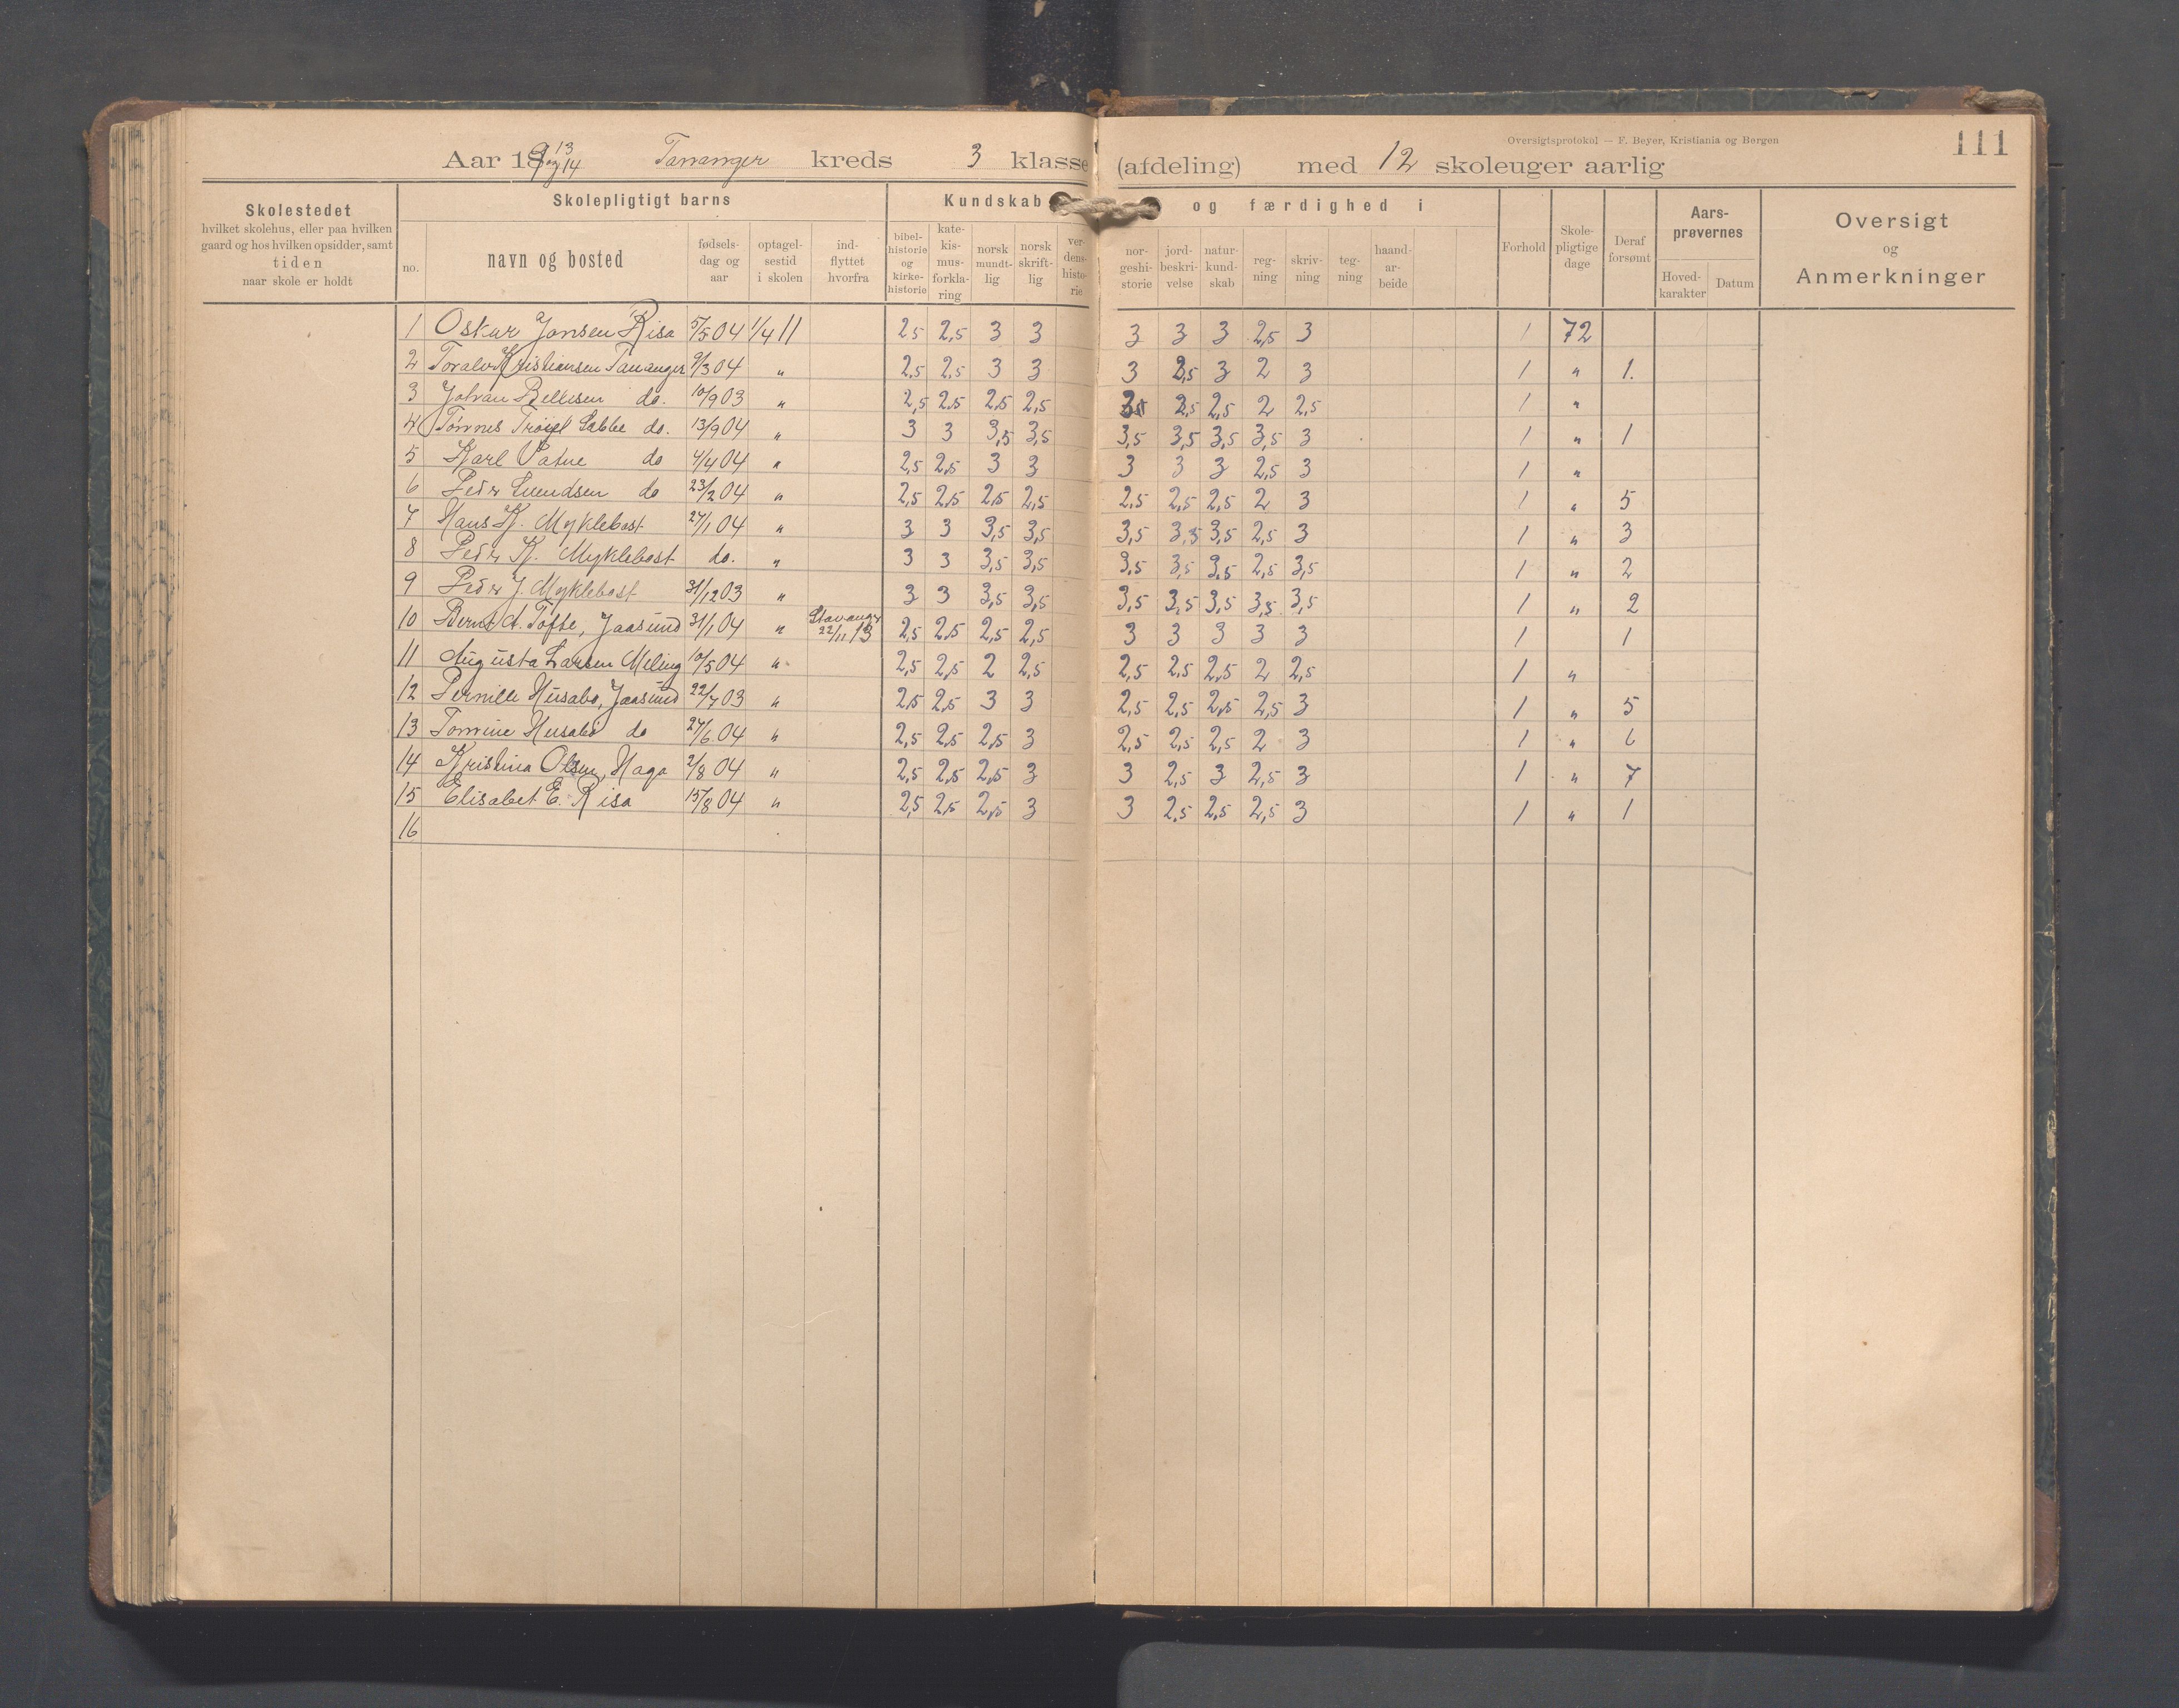 Oversigtsprotokol — F. Beyer, Kristiania og Bergen
111
Aar 1913 og 14 Tananger kreds 3 klasse (afdeling) med 12 skoleuger aarlig
Skolestedet
hvilket skolehus, eller paa hvilken
gaard og hos hvilken opsidder, samt
tiden
naar skole er holdt
Skolepligtigt barns
no.
navn og bosted
fødsels-
dag og
aar
optagel-
sestid
i skolen
ind-
flyttet
hvorfra
Kundskab og færdighed i
bibel-
historie
og
kirke-
historie
kate-
kis-
mus-
forkla-
ring
norsk
mundt-
lig
norsk
skrift-
lig
ver-
dens-
histo-
rie
nor-
geshi-
storie
jord-
beskri-
velse
natur-
kund-
skab
reg-
ning
skriv-
ning
teg-
ning
haand-
ar-
beide
Forhold
Skole-
pligtige
dage
Deraf
forsømt
Aars-
prøvernes
Hoved-
karakter
Datum
Oversigt
og
Anmerkninger
1 Oskar Jonsen Risa 5/5 04 1/4 11 2,5 2,5 3 3 3 3 3 2,5 3 1 72
2 Toralv Kristiansen Tananger 9/3 04 " 2,5 2,5 3 3 3 2,5 3 2 3 1 " 1.
3 Johan do. 10/9 03 " 2,5 2,5 2,5 2,5 2,5 2,5 2 2,5 1 "
4 Tønnes do. 13/9 04 " 3 3 3,5 3,5 3,5 3,5 3,5 3,5 3 1 " 1
5 Karl do 4/4 04 " 2,5 2,5 3 3 3 3 3 2,5 3 1 "
6 Peder Svendsen do 23/2 04 " 2,5 2,5 2,5 2,5 2,5 2,5 2,5 2 3 1 " 5
7 Hans K. Myklebost 27/1 04 " 3 3 3,5 3,5 3,5 3,5 3,5 2,5 3 1 " 3
8 Peder K. Myklebost do. " 3 3 3,5 3,5 3,5 3,5 3,5 2,5 3,5 1 " 2
9 Peder J. Myklebost 31/12 03 " 3 3 3,5 3,5 3,5 3,5 3,5 3,5 3,5 1 " 2
10 Bernt A. Tofte, Jaasund 31/1 04 " Stavanger 22/11 13 2,5 2,5 2,5 2,5 3 3 3 3 3 1 1
11 Augusta Larsen Meling 10/5 04 " 2,5 2,5 2 2,5 2,5 2,5 2,5 2 2,5 1 "
12 Pernille Husabø, Jaasund 22/7 03 " 2,5 2,5 3 3 2,5 2,5 2,5 2,5 3 1 " 5
13 Tomine Husabø do 27/6 04 " 2,5 2,5 2,5 3 2,5 2,5 2,5 2 3 1 " 6
14 Kristina Olsen, Haga 2/8 04 " 2,5 2,5 2,5 3 3 2,5 3 2,5 3 1 " 7
15 Elisabet E. Risa 15/8 04 " 2,5 2,5 2,5 3 3 2,5 2,5 2,5 3 1 " 1
16